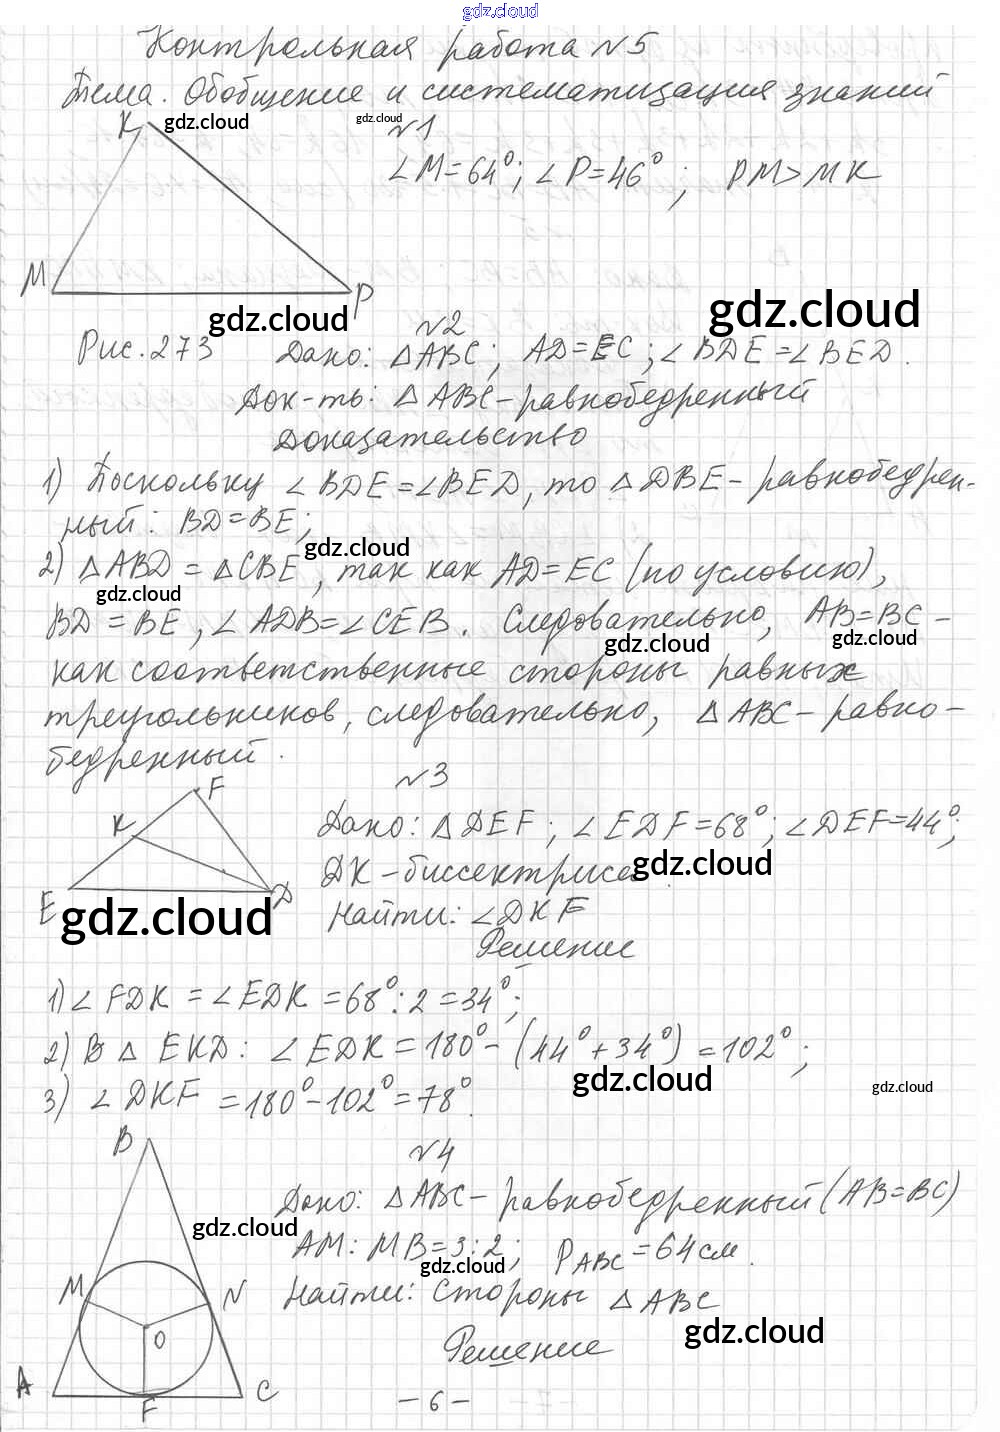 gdz.cloud
Контрольная работа №5
Тема. Обобщение и систематизация знаний
gdz.cloud
gdz.cloud
K
№1
∠M=64°; ∠P=46° ; PM>MK
M
P
gdz.cloud
gdz.cloud
Рис.273
№2
Дано: △ABC; AD=EC; ∠BDE=∠BED.
Док-ть: △ABC-равнобедренный
Доказательство
1) Поскольку ∠BDE=∠BED, то △DBE-равнобедрен-
ный: BD=BE;
gdz.cloud
2) △ABD=△CBE, так как AD=EC (по условию),
gdz.cloud
BD=BE, ∠ADB=∠CEB. Следовательно, AB=BC-
gdz.cloud
gdz.cloud
как соответственные стороны равных
треугольников, следовательно, △ABC-равно-
бедренный.
№3
F
K
E
D
Дано: △DEF; ∠EDF=68°; ∠DEF=44°;
DK-биссектриса.
gdz.cloud
gdz.cloud
Найти: ∠DKF
Решение
1) ∠FDK=∠EDK=68°:2=34°;
2) В △EKD: ∠EDK=180°-(44°+34°)=102°;
gdz.cloud
gdz.cloud
3) ∠DKF=180°-102°=78°.
№4
B
Дано: △ABC-равнобедренный (AB=BC)
gdz.cloud
AM:MB=3:2; P ABC=64см.
gdz.cloud
M
N
Найти: Стороны △ABC
gdz.cloud
O
Решение
A
F
C
-6-